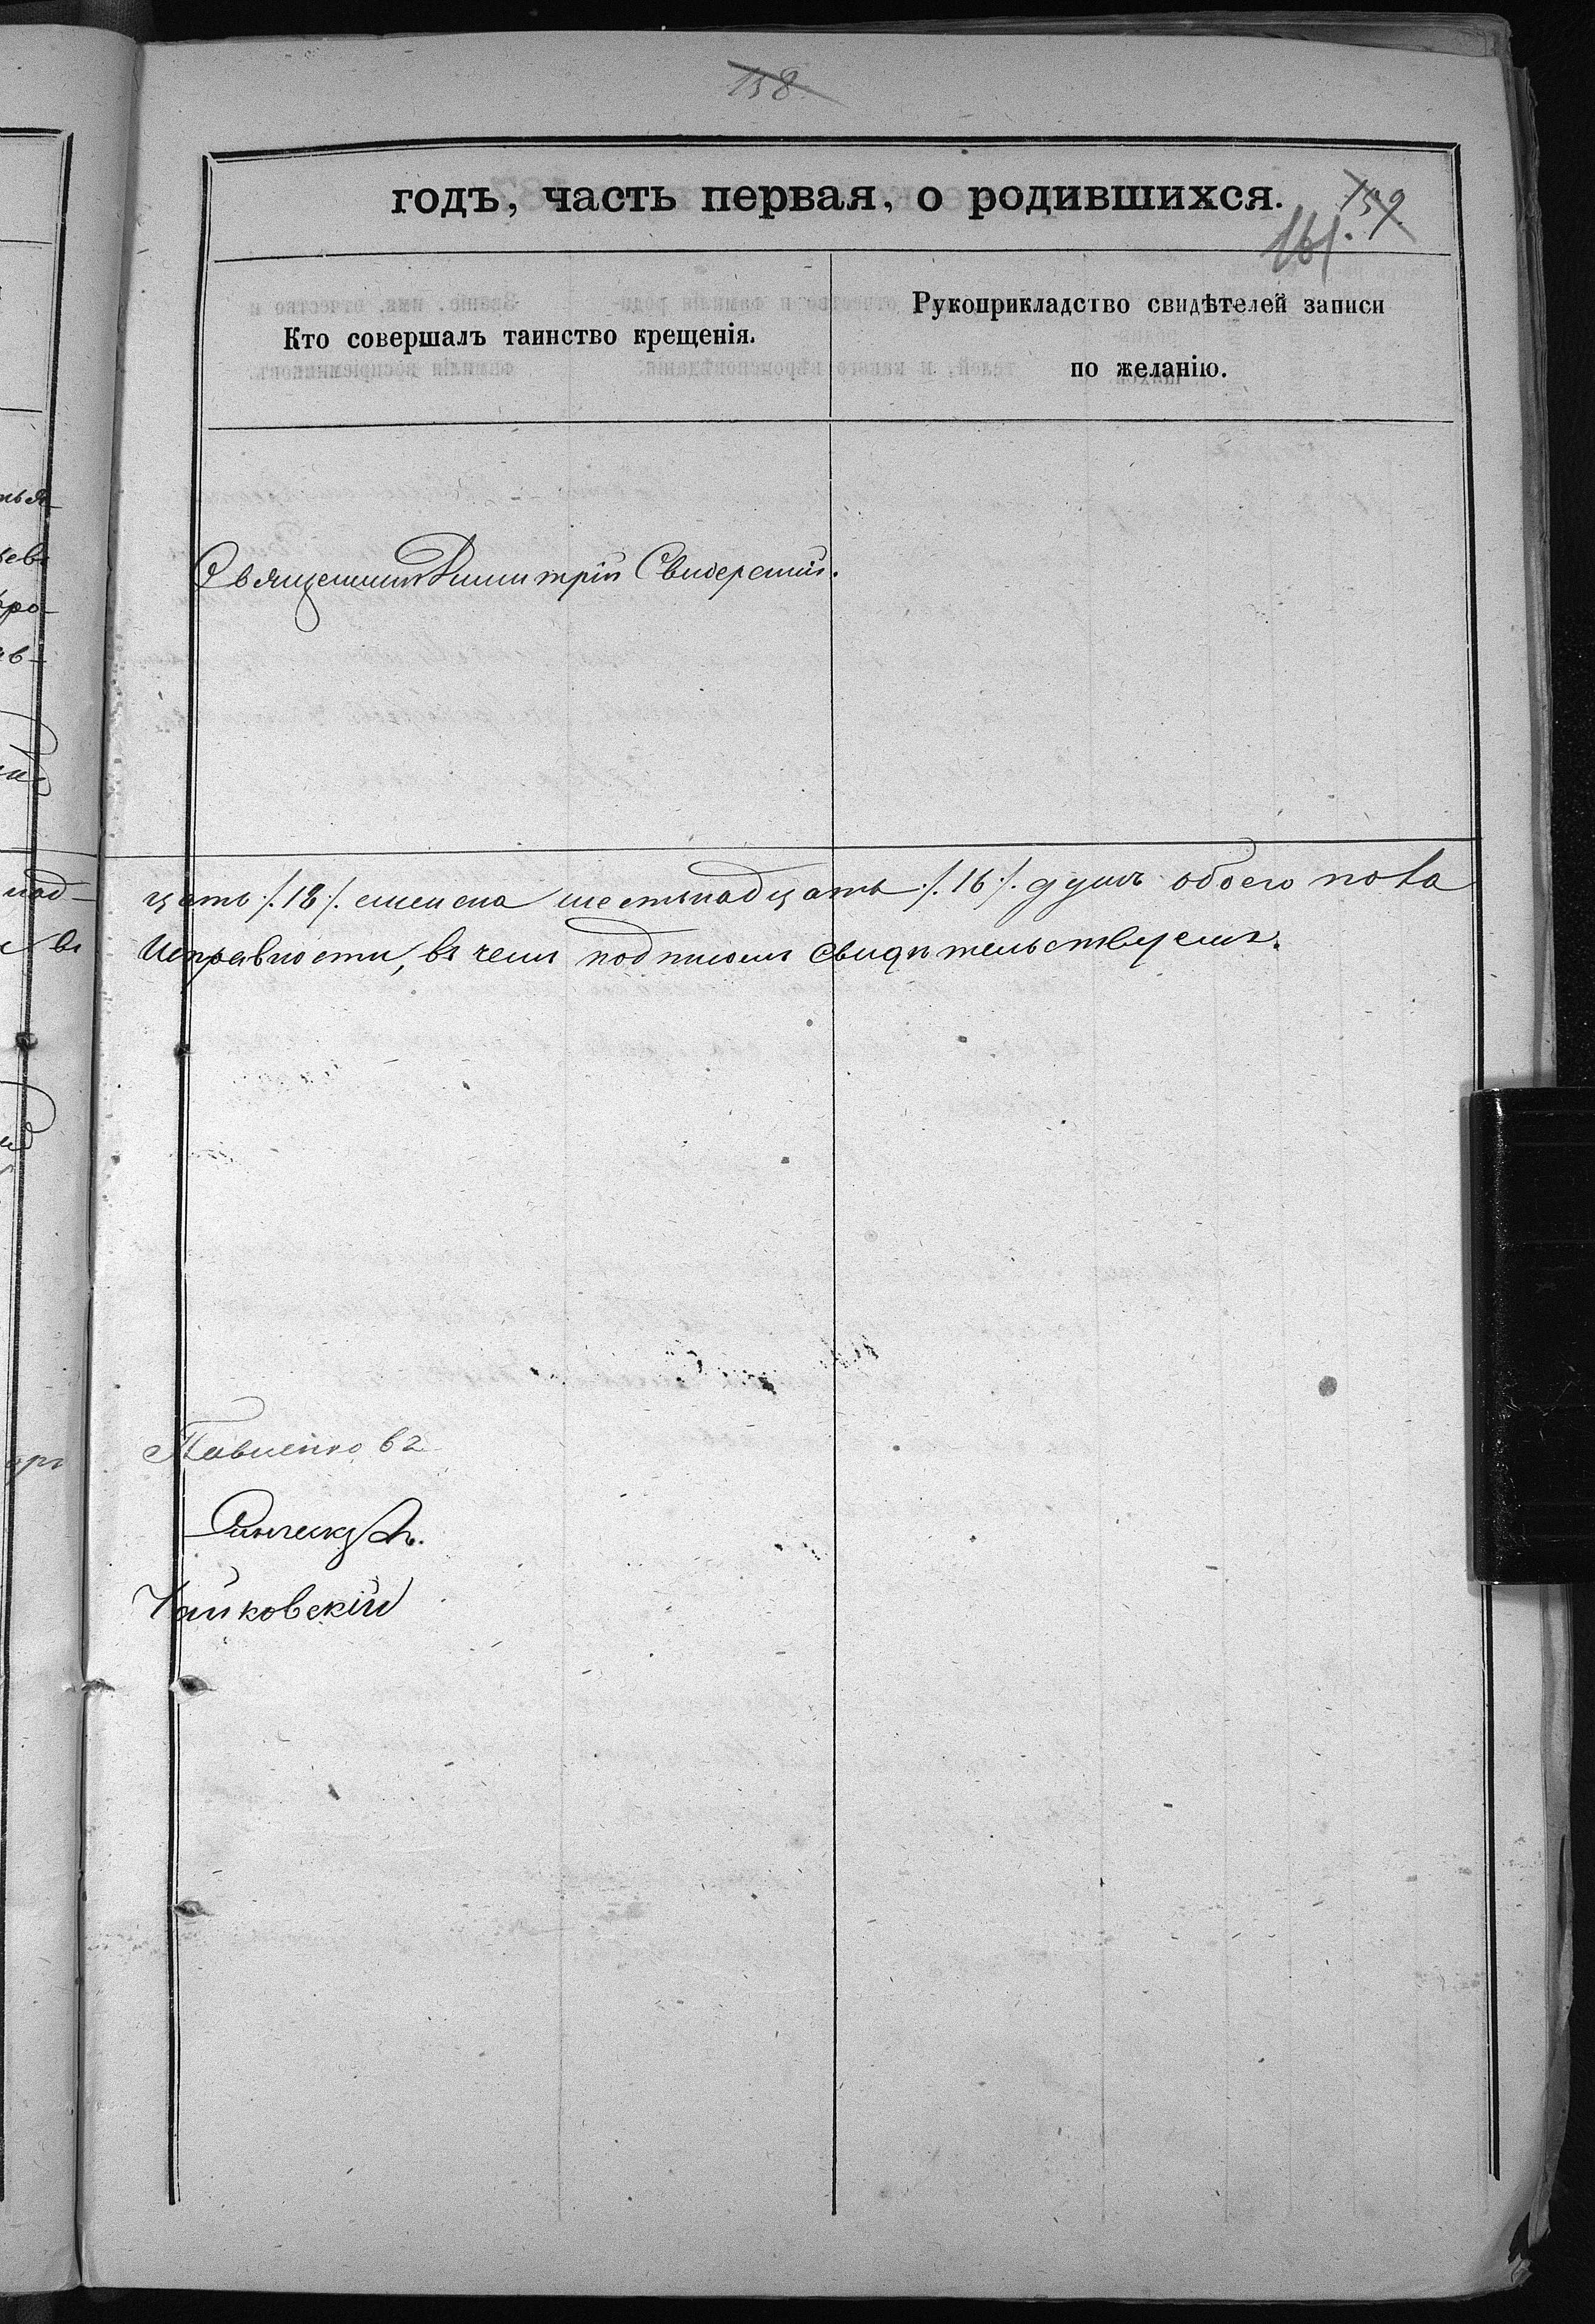 158
годъ, часть первая, о родившихся. 159
161.
Кто совершалъ таинство крещенія.
Рукоприкладство свидѣтелей записи
по желанію.
Священникъ Димитрій Свидерскій.
цать /. 18 /. женска шестьнадцать /. 16 /. душъ обоего пола
Исправности, въ чемъ подписомъ свидѣтельствуемъ.
Павленко
Чайковскій
над-
въ